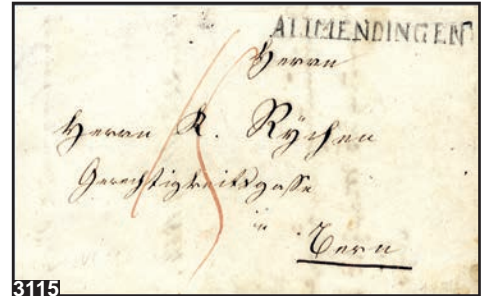 ALLMENDINGEN
Herrn
Herrn R. Rÿchen
Gerechtigkeitsgasse
in
Bern
3115